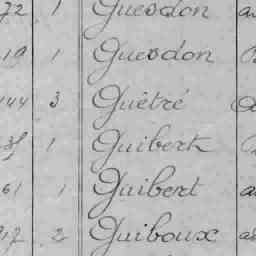 72 1 Guesdon
19 1 Guesdon
144 3 Guêtré
1 Guibert
61 1 Guibert
917 2 Guiboux